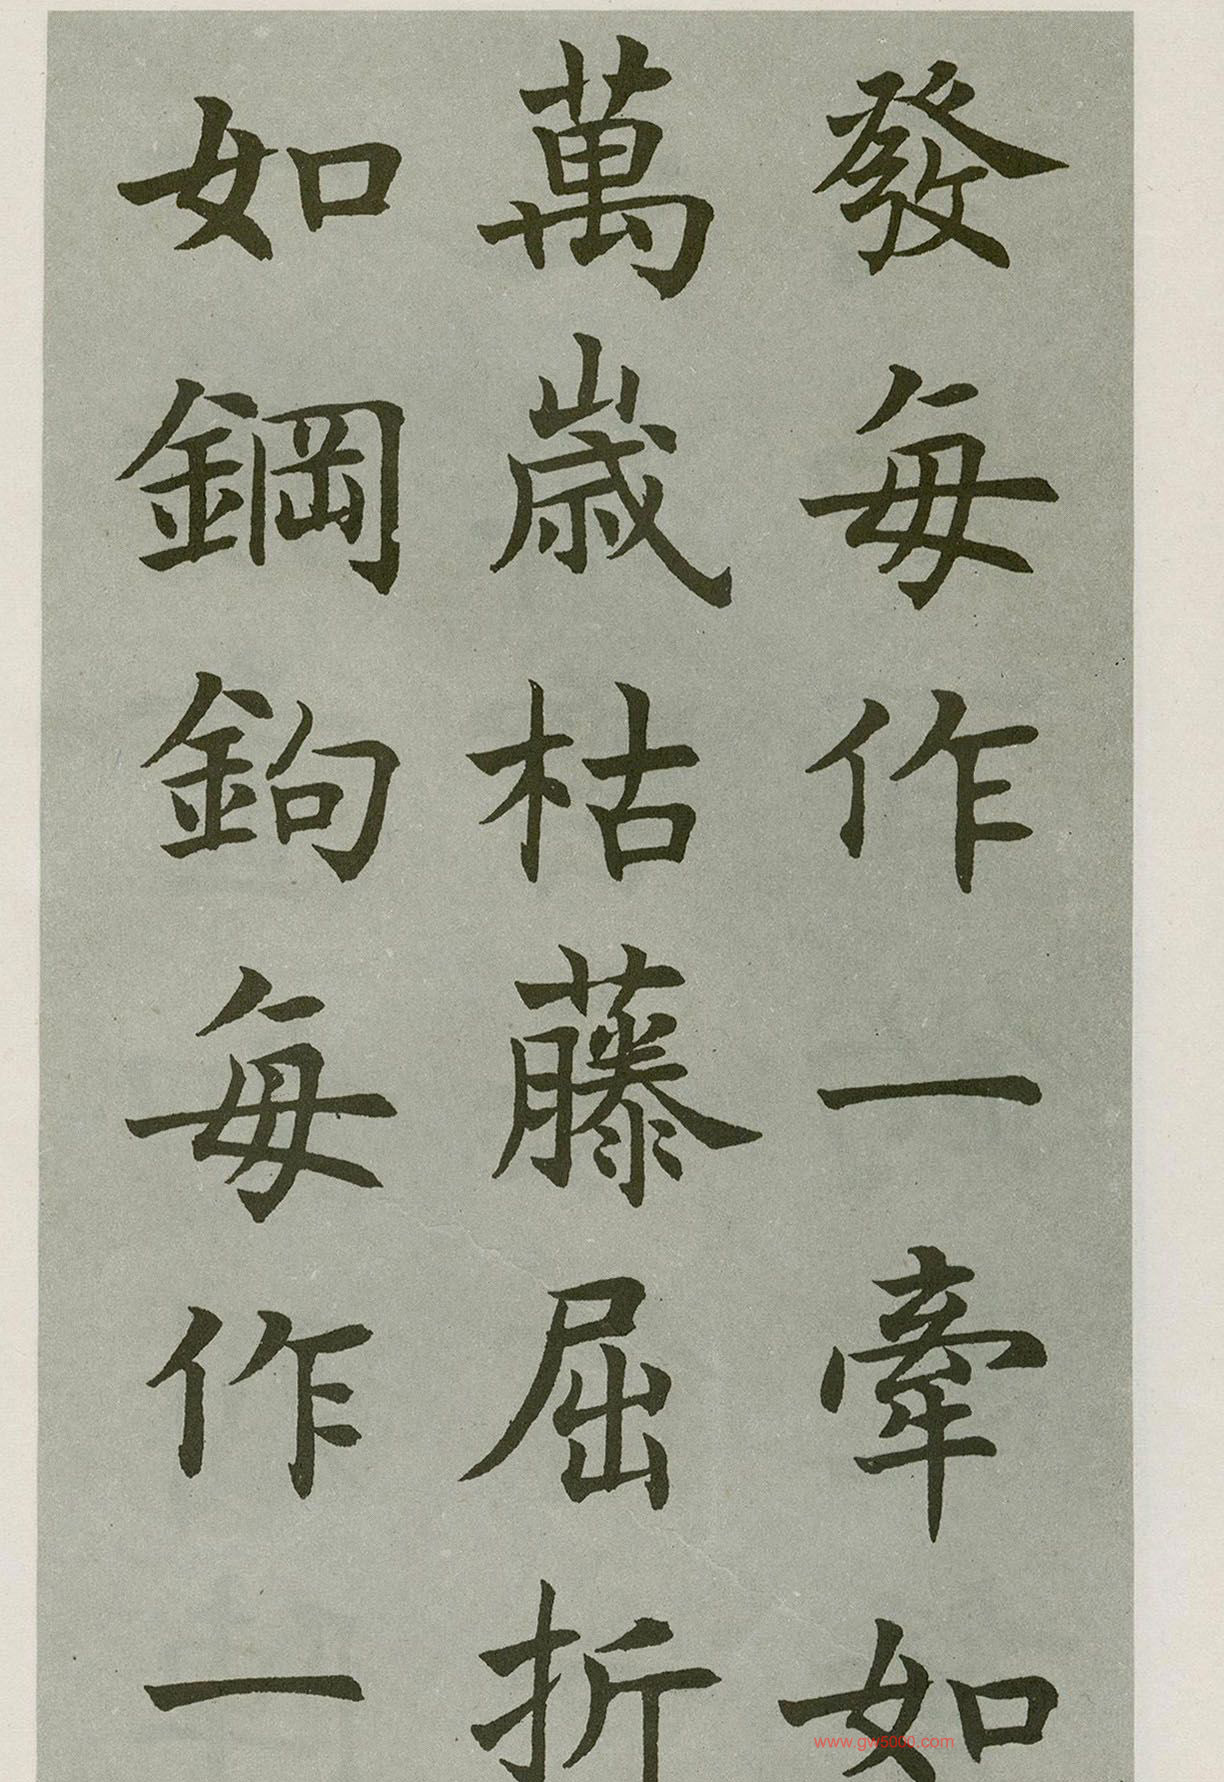 發每作一牽如
萬歲枯藤屈折
如鋼鉤每作一
www.gw5000.com